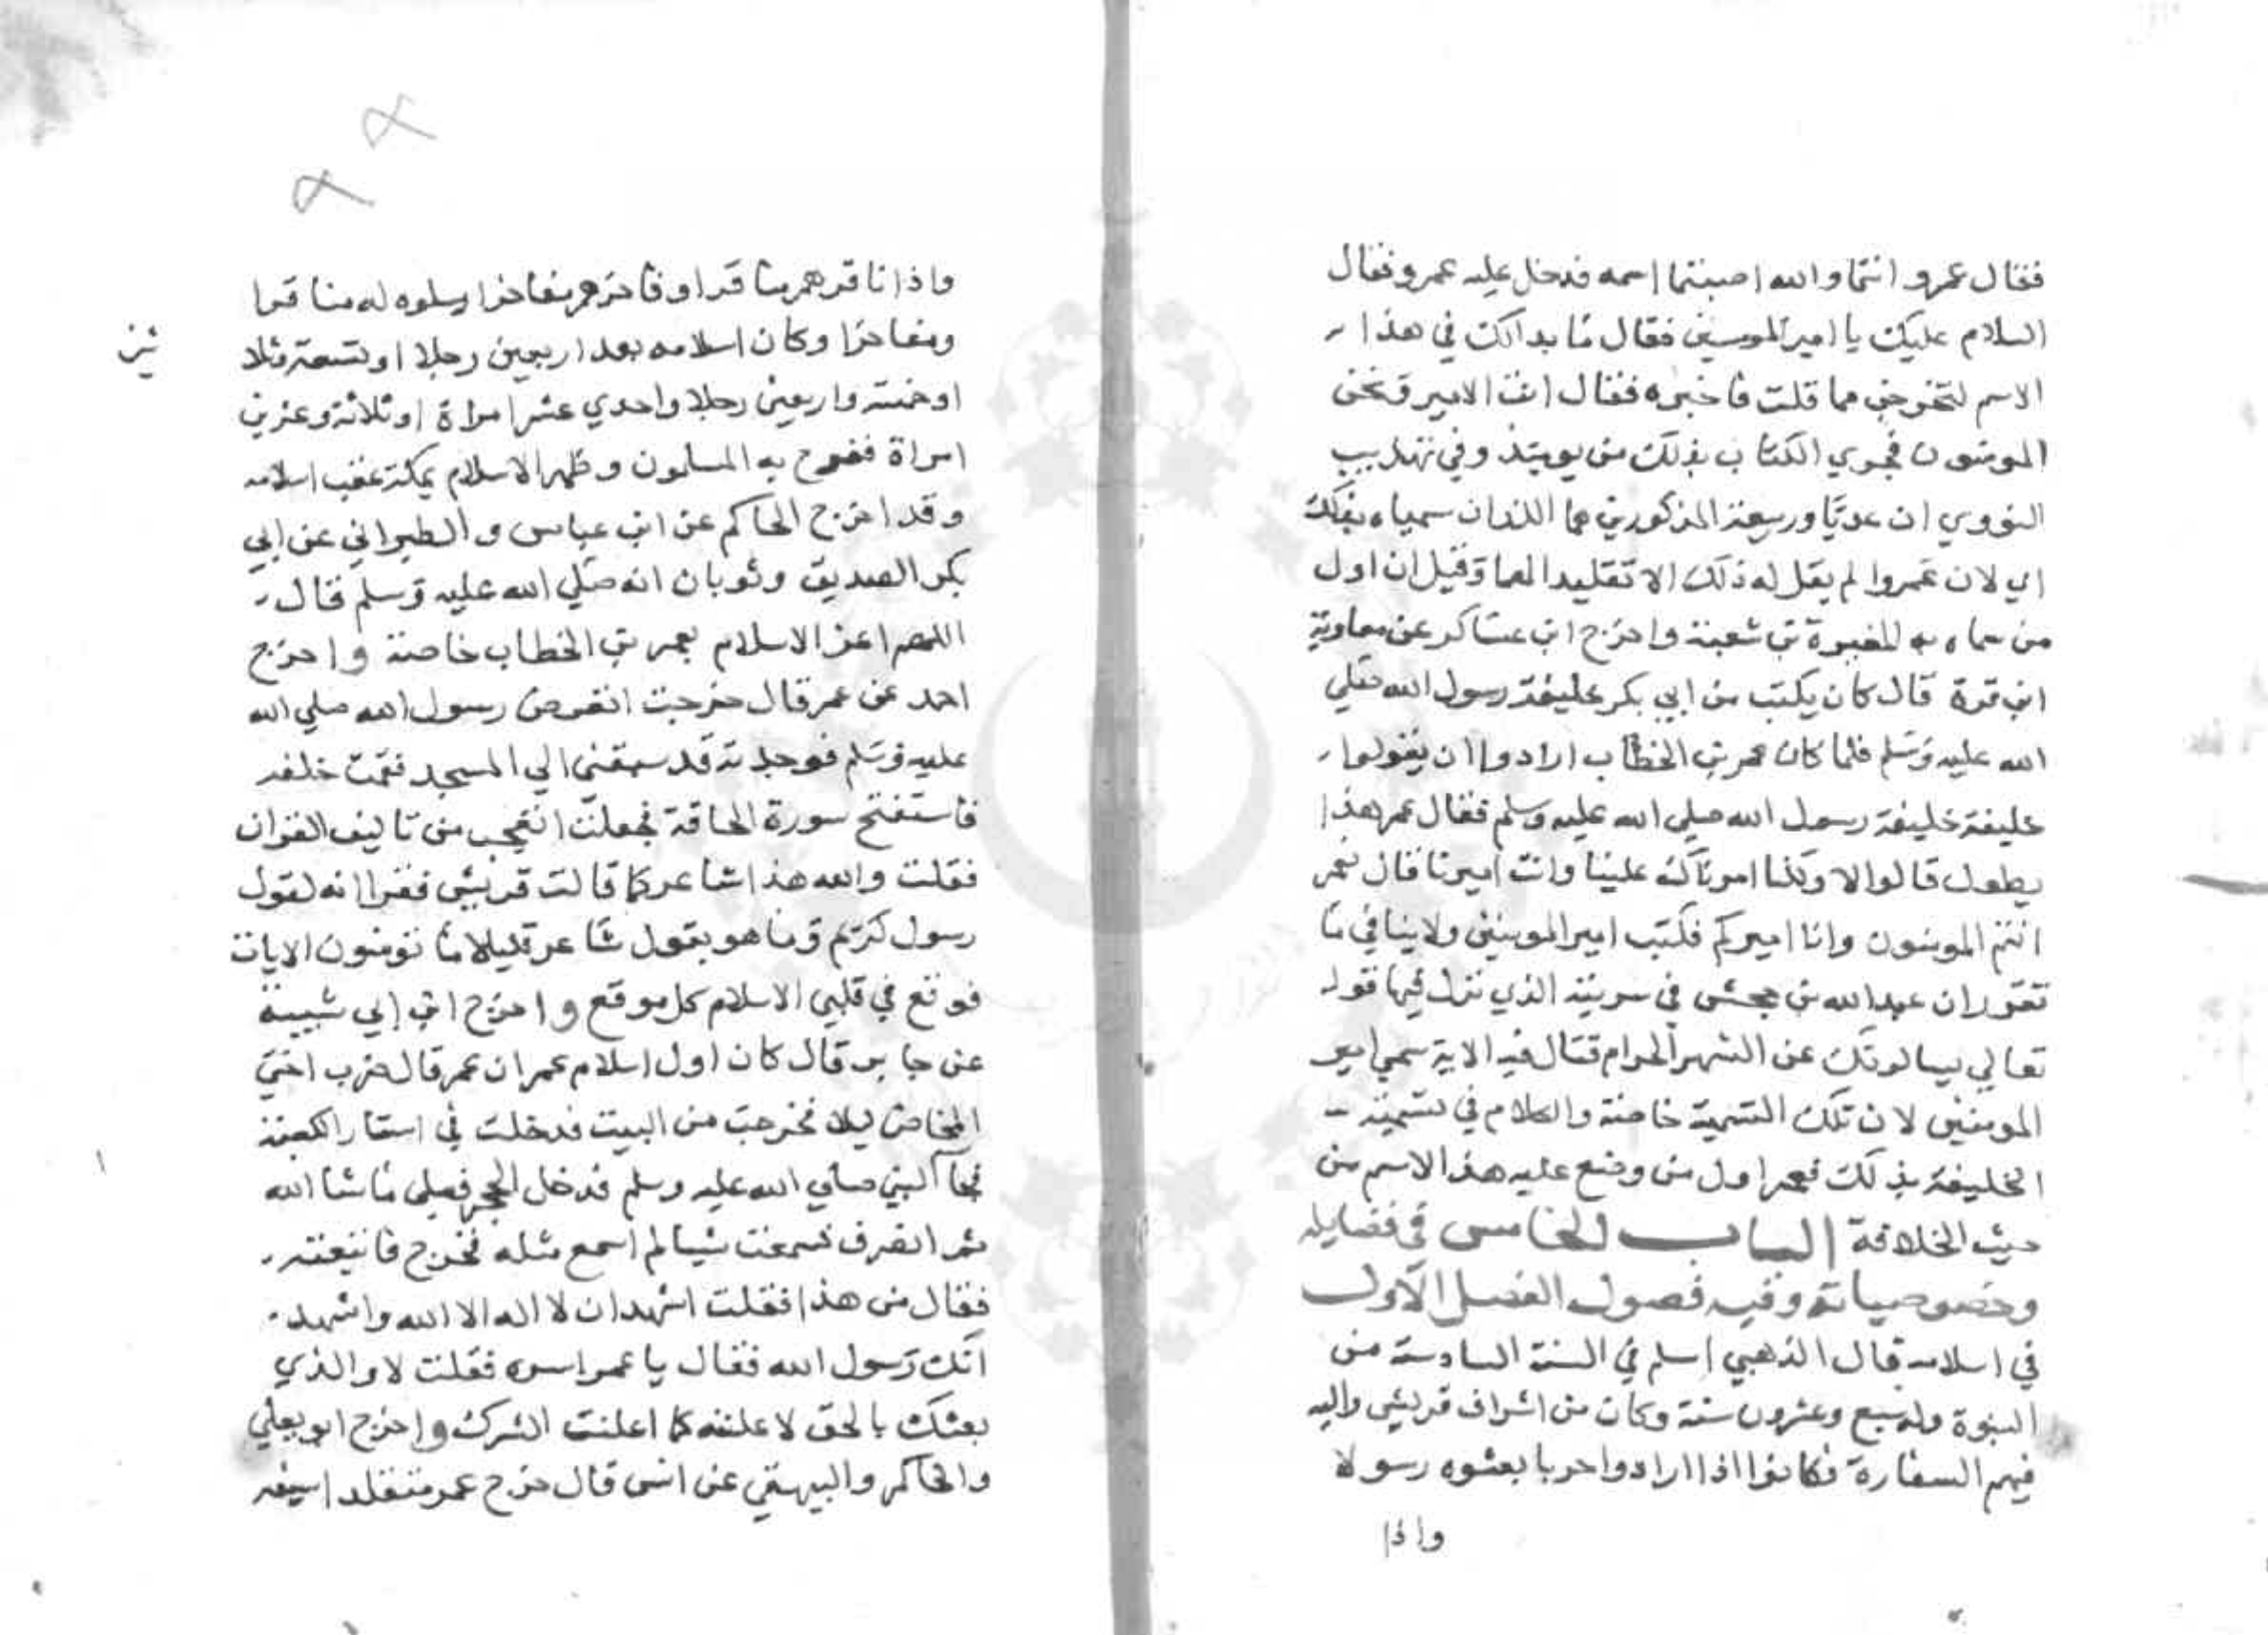 فقال عمرو انتما والله اصبتما اسمه فدخل عليه عمرو فقال
السلام عليك يا امير المومنين فقال ما بدا لك في هذا
الاسم لتخرجن مما قلت فاخبره فقال انت الامير ونحن
المومنون فجري الكتاب بذلك من يوميذ وفي تهذيب
النووي ان عديا وربيعة المذكورين هما اللذان سمياه بذلك
اي لان عمروا لم يقل له ذلك الا تقليدا لهما وقيل ان اول
من سماه به المغيرة بن شعبة واخرج ابن عساكر عن معاوية
ابن قرة قال كان يكتب من ابي بكر خليفة رسول الله صلي
الله عليه وسلم فلما كان عمر بن الخطاب ارادوا ان يقولوا
خليفة خليفة رسول الله صلي الله عليه وسلم فقال عمر هذا
يطول قالوا لا ولكنا امرناك علينا وانت اميرنا قال نعم
انتم المومنون وانا اميركم فكتب امير المومنين ولا ينافي ما
تقرر ان عبد الله بن جحش في سريته الذي نزل فيها قوله
تعالي يسالونك عن الشهر الحرام قتال فيه الاية سمي امير
المومنين لان تلك التسمية خاصة والكلام في تسمية
الخليفة بذلك فعمر اول من وضع عليه هذا الاسم من
حيث الخلافة الباب الخامس في فضايله
وخصوصياته وفيه فصول الفصل الاول
في اسلامه قال الذهبي اسلم في السنة السادسة من
النبوة وله سبع وعشرون سنة وكان من اشراف قريش واليه
فيهم السفارة فكانوا اذا ارادوا حربا بعثوه رسولا
واذا
واذا نافرهم منافر او فاخرهم مفاخر ارسلوه له منافرا
ومفاخرا وكان اسلامه بعد اربعين رجلا او تسعة وثلا
ثين
او خمسة واربعين رجلا واحدي عشر امراة او ثلاثة وعشرين
امراة ففرح به المسلمون وظهر الاسلام بمكة عقب اسلامه
وقد اخرج الحاكم عن ابن عباس والطبراني عن ابي
بكر الصديق وثوبان انه صلي الله عليه وسلم قال
اللهم اعز الاسلام بعمر بن الخطاب خاصة واخرج
احمد عن عمر قال خرجت اتعرض رسول الله صلي الله
عليه وسلم فوجدته قد سبقني الي المسجد فقمت خلفه
فاستفتح سورة الحاقة فجعلت اتعجب من تاليف القران
فقلت والله هذا شاعر كما قالت قريش فقرا انه لقول
رسول كريم وما هو بقول شاعر قليلا ما تومنون الايات
فوقع في قلبي الاسلام كل موقع واخرج ابن ابي شيبة
عن جابر قال كان اول اسلام عمر ان عمر قال ضرب اختي
المخاض ليلا فخرجت من البيت فدخلت في استار الكعبة
فجا النبي صلي الله عليه وسلم فدخل الحجر فصلي ما شا الله
ثم انصرف فسمعت شيا لم اسمع مثله فخرج فاتبعته
فقال من هذا فقلت اشهد ان لا اله الا الله واشهد
انك رسول الله فقال يا عمر اسره فقلت لا والذي
بعثك بالحق لاعلننه كما اعلنت الشرك واخرج ابو يعلي
والحاكم والبيهقي عن انس قال خرج عمر متقلدا سيفه